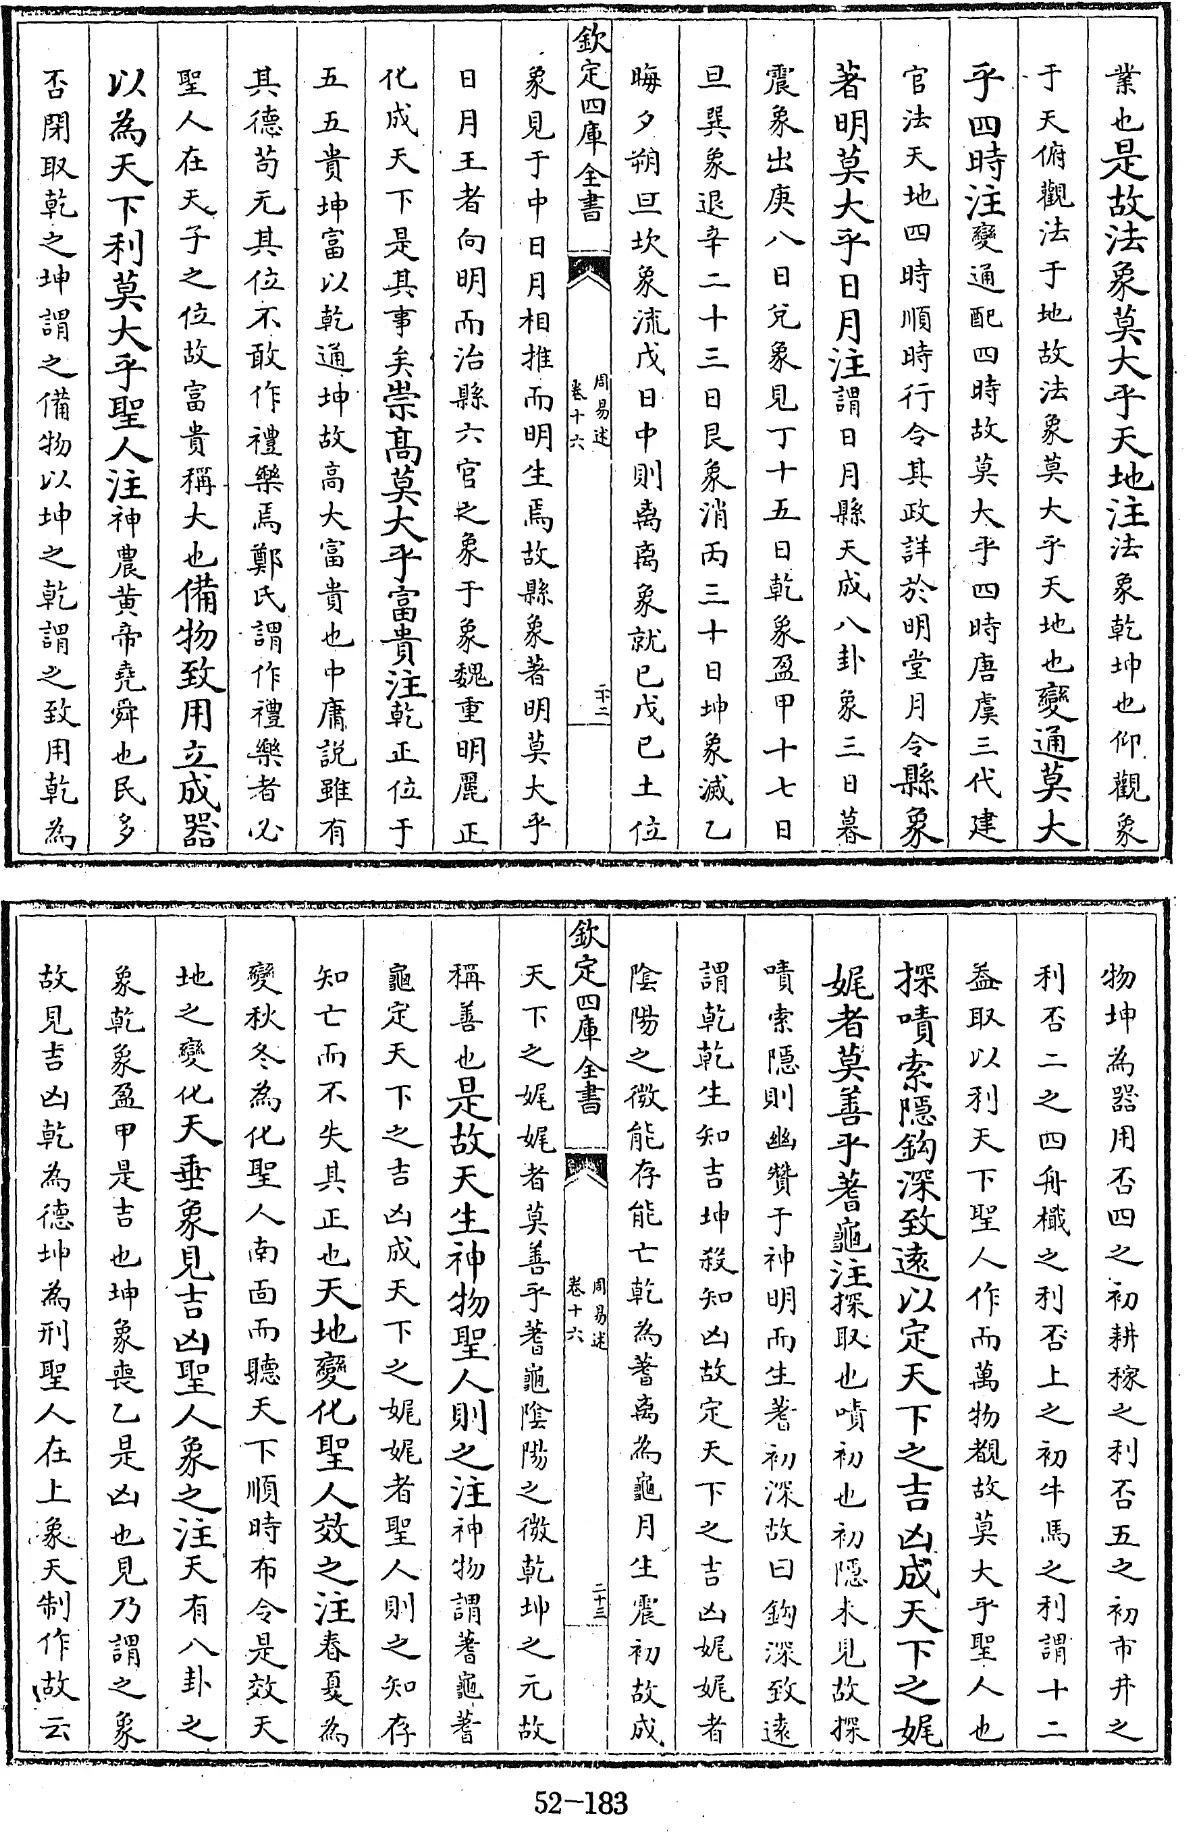 業也是故法象莫大乎天地注法象乾坤也仰觀象
于天俯觀法于地故法象莫大乎天地也變通莫大
乎四時注變通配四時故莫大乎四時唐虞三代建
官法天地四時順時行令其政詳於明堂月令縣象
著明莫大乎日月注謂日月縣天成八卦象三日暮
震象出庚八日兌象見丁十五日乾象盈甲十七日
旦巽象退辛二十三日艮象消丙三十日坤象滅乙
晦夕朔旦坎象流戊日中則离离象就巳戊巳土位
欽定四庫全書
周易述
卷十六
二十二
象見于中日月相推而明生焉故縣象著明莫大乎
日月王者向明而治縣六官之象于象魏重明麗正
化成天下是其事矣崇高莫大乎富貴注乾正位于
五五貴坤富以乾通坤故高大富貴也中庸説雖有
其德苟无其位不敢作禮樂焉鄭氏謂作禮樂者必
聖人在天子之位故富貴稱大也備物致用立成器
以為天下利莫大乎聖人注神農黄帝堯舜也民多
否閉取乾之坤謂之備物以坤之乾謂之致用乾為
物坤為器用否四之初耕稼之利否五之初市井之
利否二之四舟檝之利否上之初牛馬之利謂十二
葢取以利天下聖人作而萬物覩故莫大乎聖人也
探嘖索隱鈎深致遠以定天下之吉凶成天下之娓
娓者莫善乎蓍龜注探取也嘖初也初隱未見故探
嘖索隱則幽贊于神明而生蓍初深故曰鈎深致遠
謂乾乾生知吉坤殺知凶故定天下之吉凶娓娓者
陰陽之微能存能亡乾為蓍离為龜月生震初故成
欽定四庫全書
周易述
卷十六
二十三
天下之娓娓者莫善乎蓍龜陰陽之微乾坤之元故
稱善也是故天生神物聖人則之注神物謂蓍龜蓍
龜定天下之吉凶成天下之娓娓者聖人則之知存
知亡而不失其正也天地變化聖人效之注春夏為
變秋冬為化聖人南面而聽天下順時布令是效天
地之變化天垂象見吉凶聖人象之注天有八卦之
象乾象盈甲是吉也坤象喪乙是凶也見乃謂之象
故見吉凶乾為德坤為刑聖人在上象天制作故云
52-183